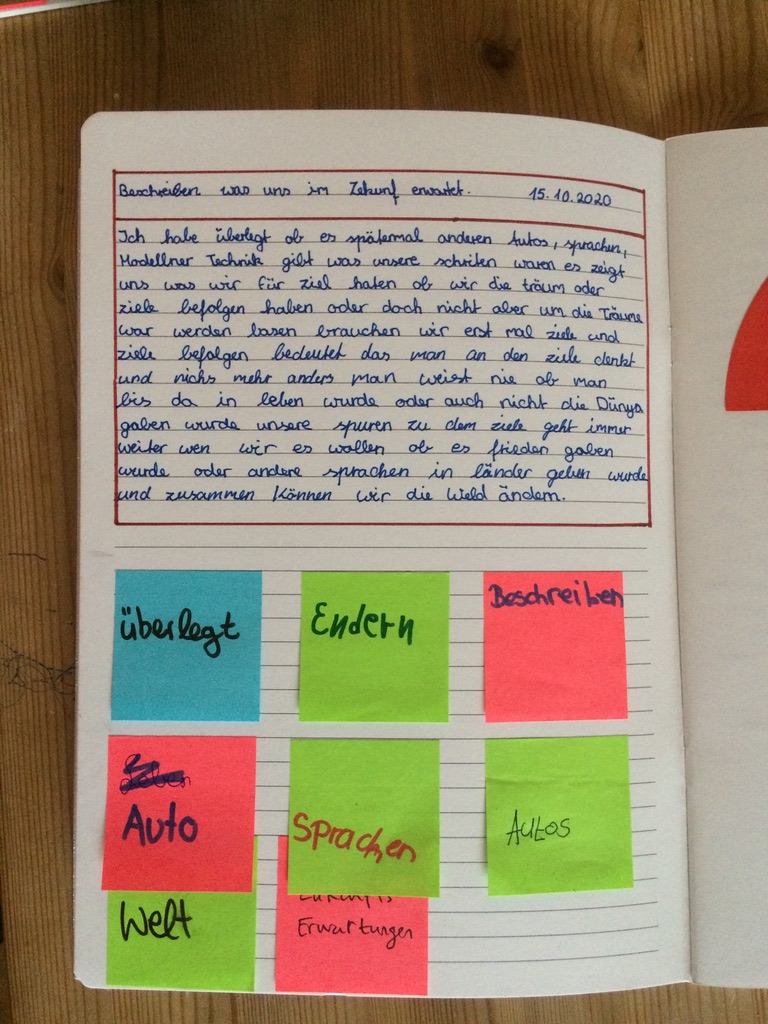 Beschreiben was uns im Zekunf erwartet. 15.10.2020
Ich habe überlegt ob es spätermal anderen Autos, sprachen,
Modellner Technik gibt was unsere schriten waren es zeigt
uns was wir für ziel haten ob wir die träum oder
ziele befolgen haben oder doch nicht aber um die Träume
war werden lasen brauchen wir erst mal ziele und
ziele befolgen bedeutet das man an den ziele denkt
und nichs mehr anders man weist nie ob man
bis da in leben wurde oder auch nicht die Dünya
gaben wurde unsere spuren zu dem ziele geht immer
weiter wen wir es wollen ob es frieden gaben
wurde oder andere sprachen in länder geben wurde
und zusammen können wir die Weld ändern.
überlegt
Endern
Beschreiben
Auto
Sprachen
Autos
Welt
Erwartungen